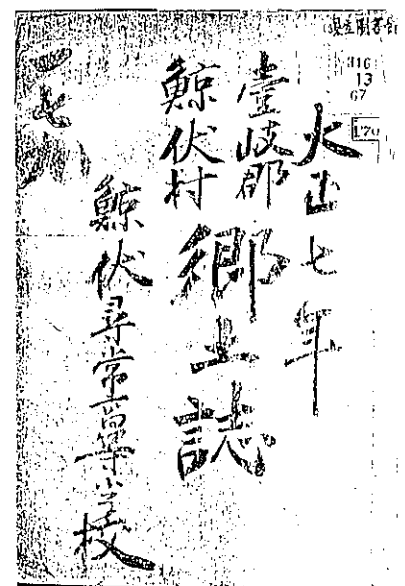 316
13
67
大正七年
壹岐郡
鯨伏村
郷土誌
鯨伏尋常高等小学校